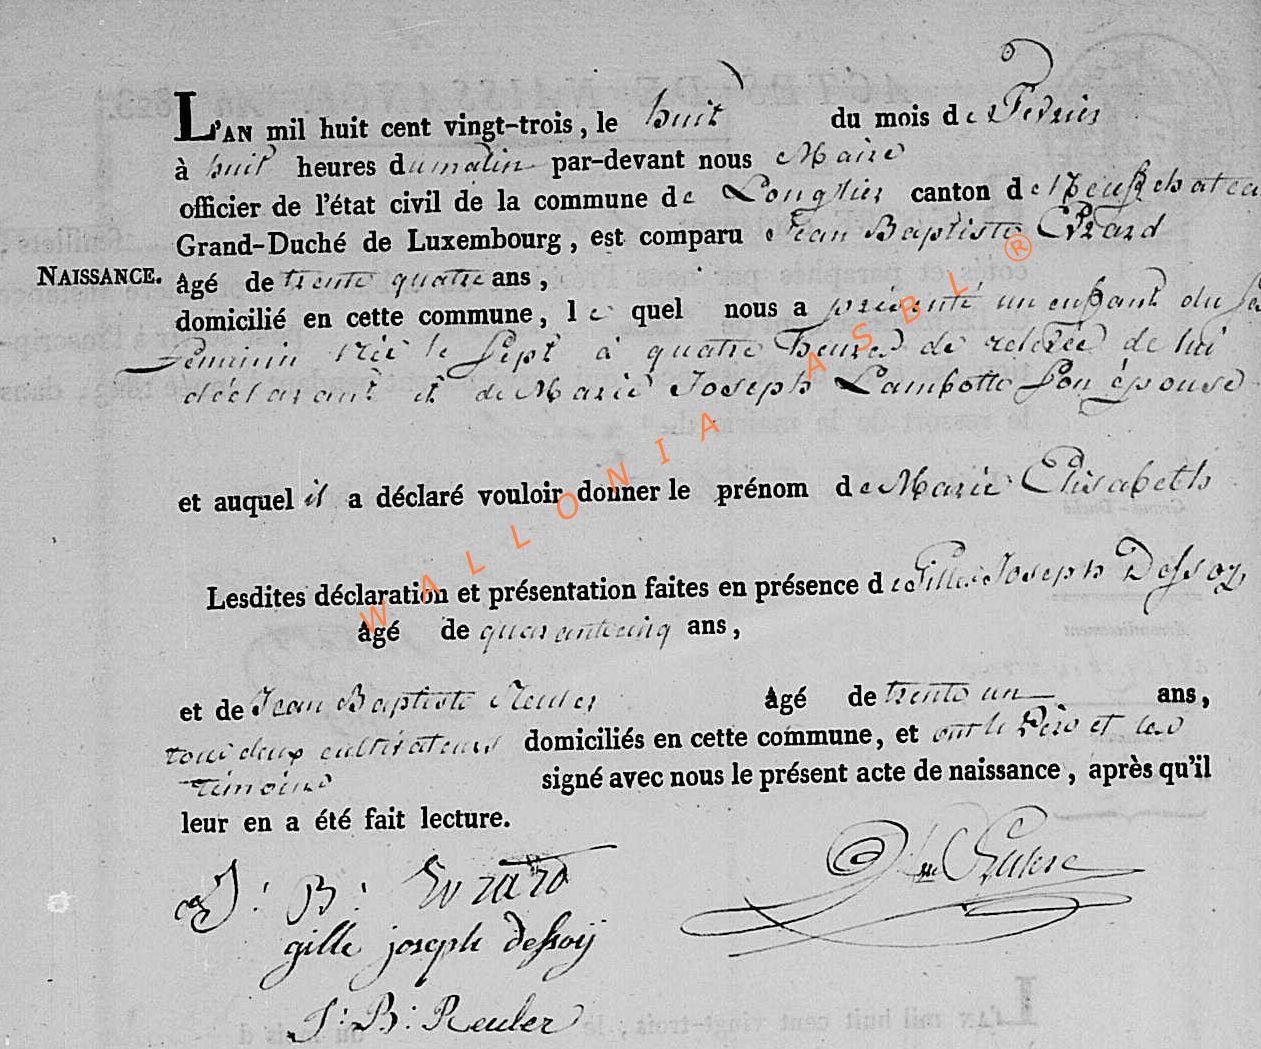 L'AN mil huit cent vingt-trois, le huit du mois de Février
à huit heures du matin par-devant nous Maire
officier de l'état civil de la commune de Longlier canton de Neufchateau
Grand-Duché de Luxembourg, est comparu Jean Baptiste Evrard
NAISSANCE. âgé de trente quatre ans,
domicilié en cette commune, le quel nous a présenté un enfant du
feminin née le sept à quatre heures de relevée de lui
déclarant et de Marie Joseph Lambotte son épouse
et auquel il a déclaré vouloir donner le prénom de Marie Elisabeth
Lesdites déclaration et présentation faites en présence de Gille Joseph Dessoy
âgé de quarantecinq ans,
et de Jean Baptiste Reuler âgé de trente un ans,
tous deux cultivateurs domiciliés en cette commune, et ont le Père et les
témoins signé avec nous le présent acte de naissance, après qu'il
leur en a été fait lecture.
J: B: Evrard
gille joseph dessoij
J: B: Reuler
WALLONIA ASBL ®